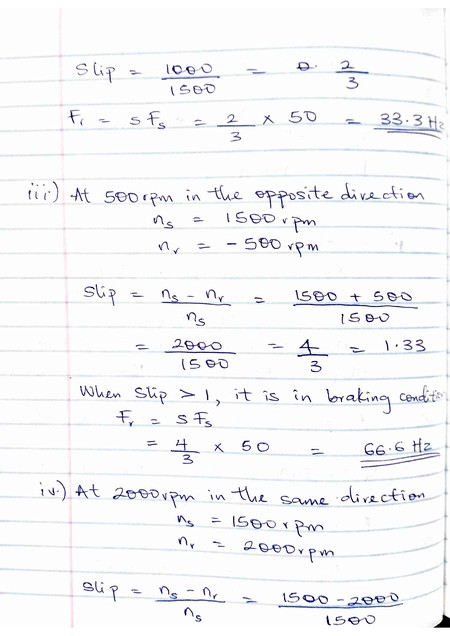 Slip = 1000/1500 = 2/3
Fr = sFs = 2/3 × 50 = 33.3 Hz
iii.) At 500rpm in the opposite direction
ns = 1500rpm
nr = -500rpm
Slip = ns - nr/ns = 1500 + 500/1500
= 2000/1500 = 4/3 = 1.33
When Slip > 1, it is in braking
Fr = sFs
= 4/3 × 50 = 66.6 Hz
iv.) At 2000rpm in the same direction
ns = 1500rpm
nr = 2000rpm
Slip = ns - nr/ns = 1500 - 2000/1500